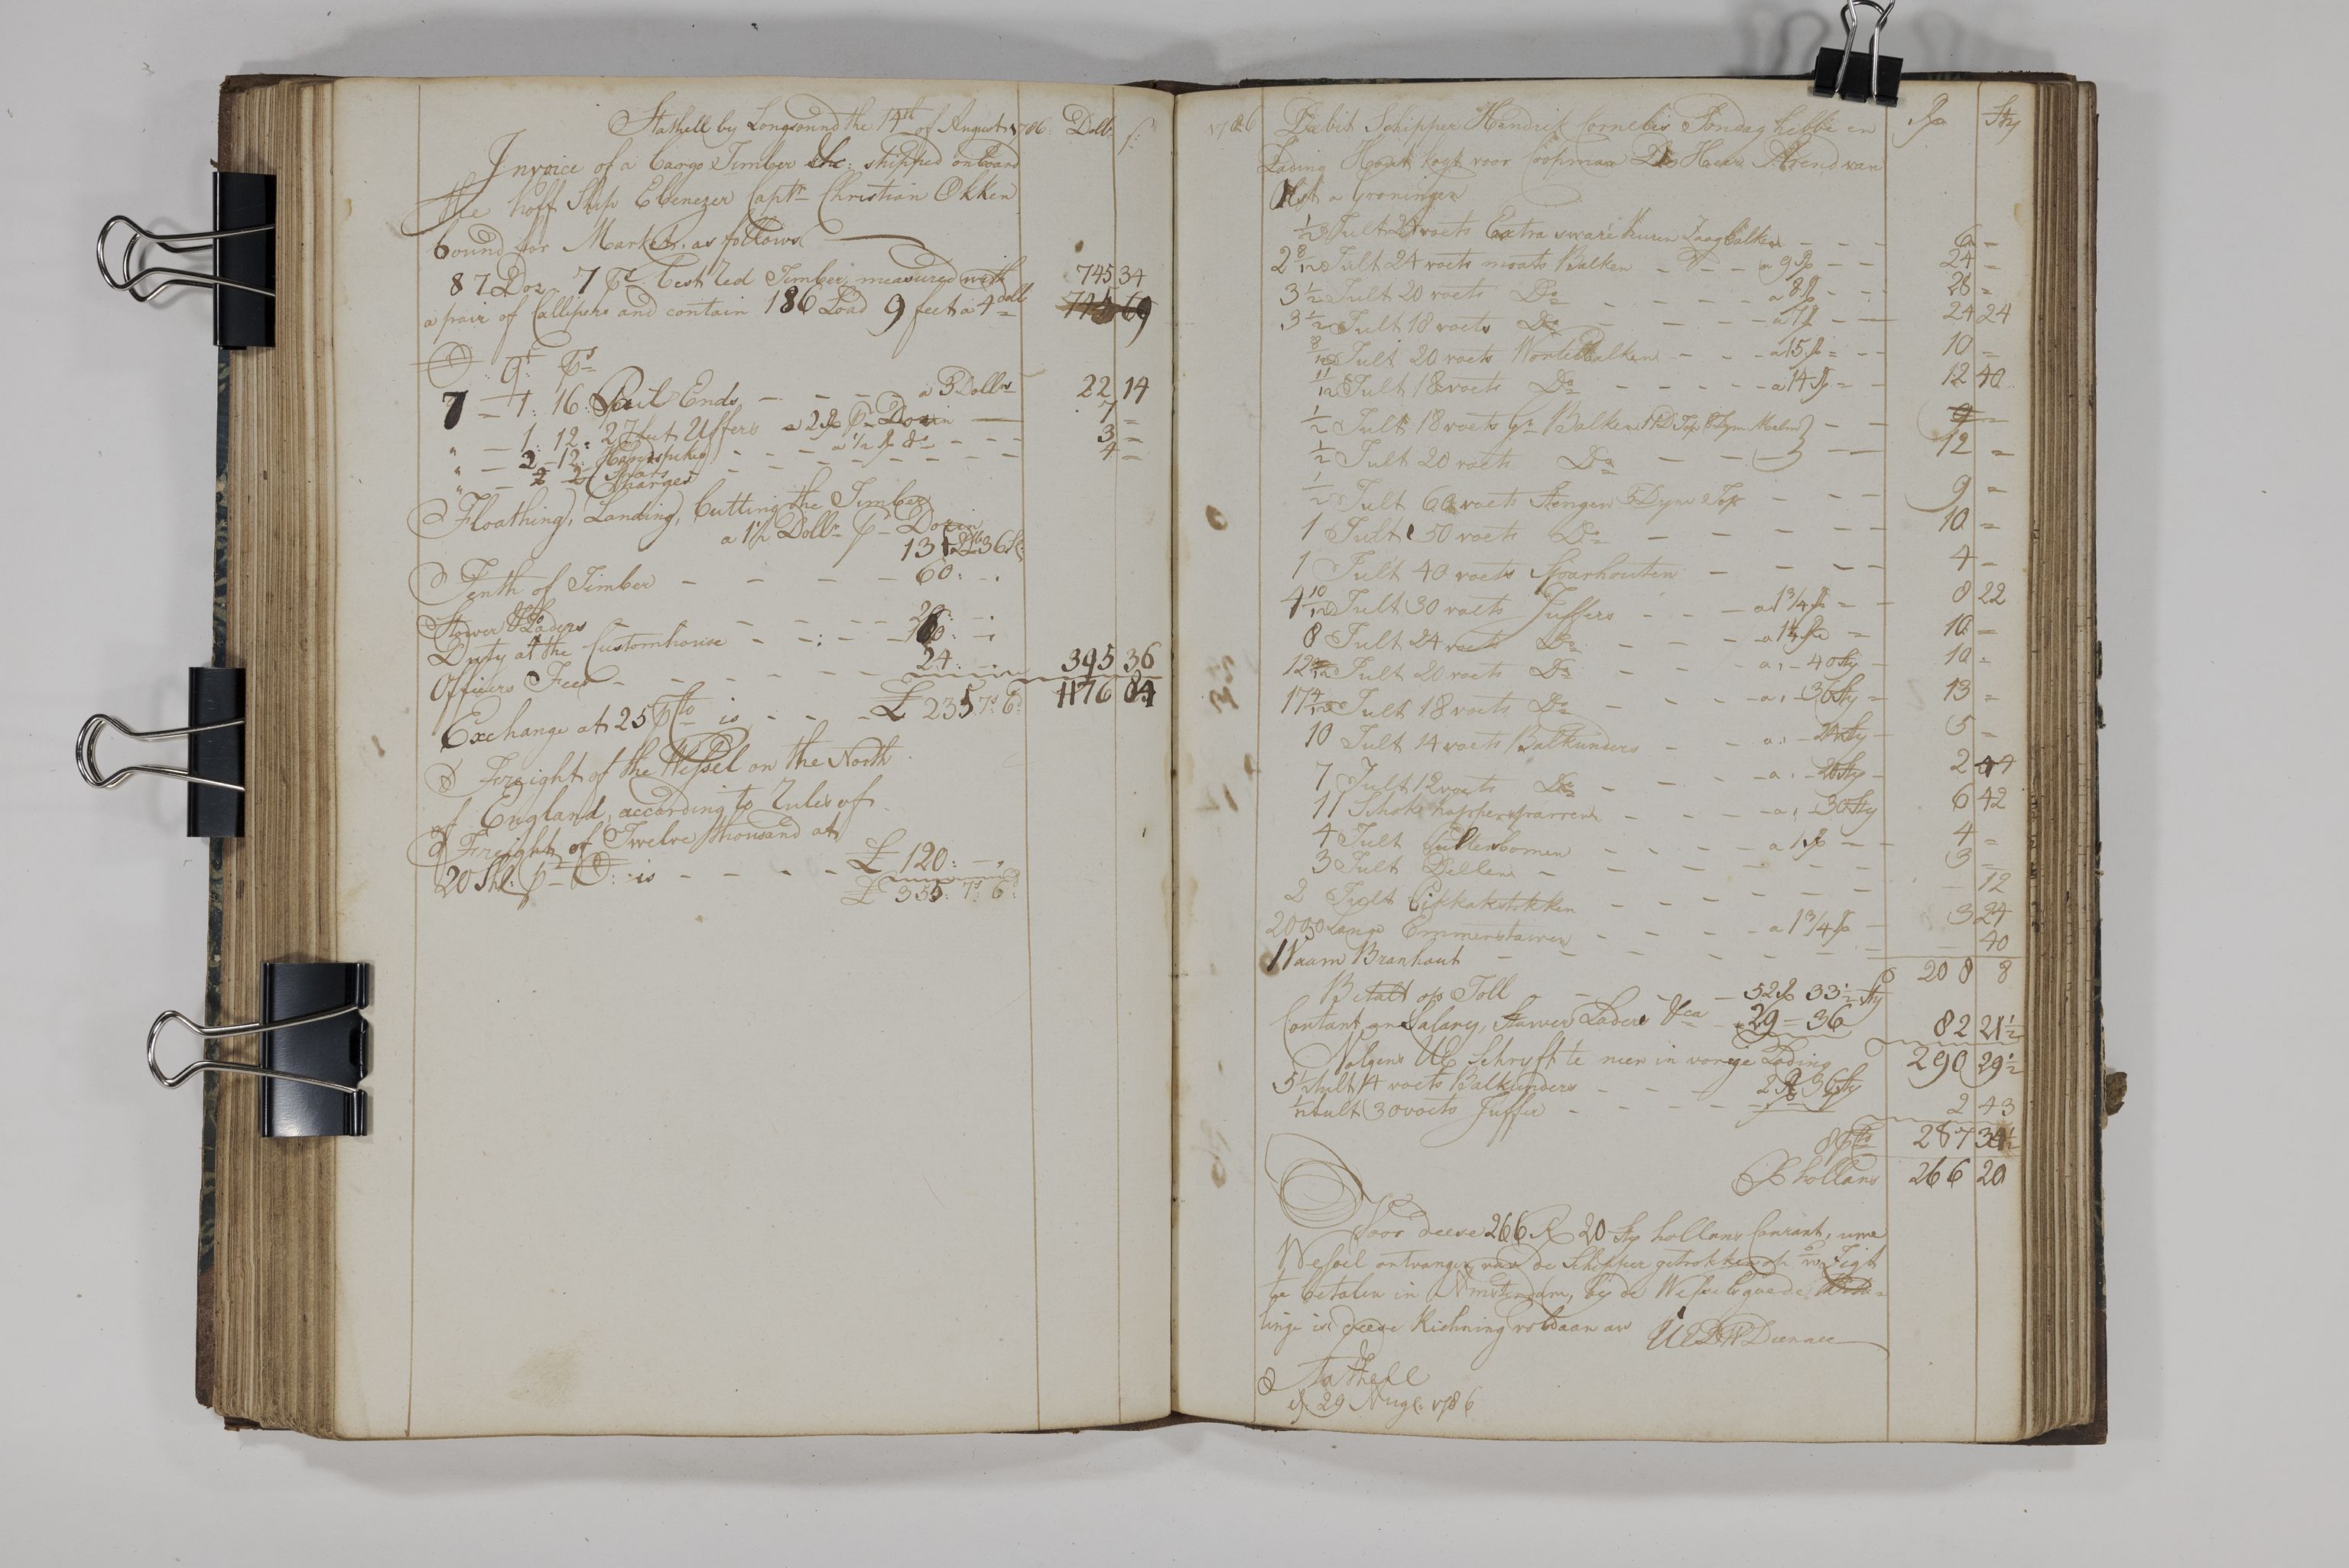 Stathell by Longsound the 14th of August 1786. Dollr s:
Invoice of a Cargo Timber &c: shipped onboard
the hoff Ship Ebenezer Captn Christian Okken
bound for Market. as follows
87 Doz. 7 ps best Red Timber, measured with 745 34
a pair of Callipers and contain 186 Load 9 feet a 4 dollr
C q: ps
7 – 1: 16: Pail Ends – – – a 3 Dollrs 22 14
" – 1: 12: 27 feet Uffers a 2 Rd pr Dozin 7 =
" – 2 – 12: Handspikes – – – a 1½ Rd do – – – 3 =
" – 2 – – – – 4 =
Charges
Floathing, Landing, Cutting the Timber
a 1½ Dollr pr Dozin
131 Dlr 36 s:
Tenth of Timber – – – – 60: – .
Stower & Laders – – – – 20: – .
Duty at the Customhouse – – : – 160: – :
Officers Fees – – – – – – 24: – . 395 36
1176 84
Exchange at 25 pCto is – – – £ 235 7s: 6d
Freight of the Wessel on the North
of England, according to Rules of
Freight of Twelve thousand at
20 Shl: pr C: is – – – – £ 120: – .
£ 355: 7s: 6d
1786 Debit Schipper Hendrik Cornelis Sondag hebbe en Rd Sty
Lading Hout kogt voor Coopman De Heer Arend van
Olst a Groningen
½ Tult 24 voets Extra sware kuren Zaagbalken – – – 6 –
2 8/12 Tult 24 voets moats Balken – – – a 9 Rd – – 24 –
3½ Tult 20 voets Do – – – – a 8 Rd – – – 28 =
3½ Tult 18 voets Do – – – – a 7 Rd – – 24 24
8/12 Tult 20 voets Balken – – – a 15 Rd = – – 10 –
11/12 Tult 18 voets Do – – – – – a 14 Rd = – 12 40
½ Tult 18 voets Balken – –
½ Tult 20 voets Do – – – – 12 =
½ Tult 60 voets Stengen 5 Dym Top – – – 9 =
1 Tult 50 voets Do – – – – – – 10 =
1 Tult 40 voets Sparhouten – – – – 4 –
4 10/12 Tult 30 voets Juffers – – – a 1¾ Rd = – 8 22
8 Tult 24 voets Do – – – a 1¼ Rd = 10 –
12 Tult 20 voets Do – – – a: – 40 Sty – 10 –
17 4/12 Tult 18 voets Do – – – – a: – 36 Sty = 13 =
10 Tult 14 voets Balkunders – – a: – 24 Sty – 5 –
7 Tult 12 voets Do – – – a: – 20 Sty – 2 44
11 Schok happersparren – – – a: – 30 Sty 6 42
4 Tult – – – a 1 Rd – – 4 =
3 Tult Dellen – – – – – – 3 =
2 Tult Pikkakstokken – – – – – 12
2000 Lange Emmerstawer – – – a 1¾ Rd – 3 24
1 Vaam Branhout – – – – – – 40
208 8
Betalt op Toll – – – 52 Rd 33½ Sty
Contant an Salary, Stawer Laders &ca 29 = 36 82 21½
290 29½
Volgens UE Schryft te meer in vorige Lading
5½ Tult 14 voets Balkunders – – – 2 Rd 36 Sty
½ Tult 30 voets Juffer – – – – 2 43
8 pCto 287 34½
Rd hollans 266 20
Voor deese 266 Rd 20 Sty hollans Courant, une
Wessel ontvangen van de Schipper getrokken op Sigt
te betalen in Amsterdam, by de Wessels goede
linge is deese Richning voldaan an UEDW Dienaer
Stathell
d. 29 Aug. 1786